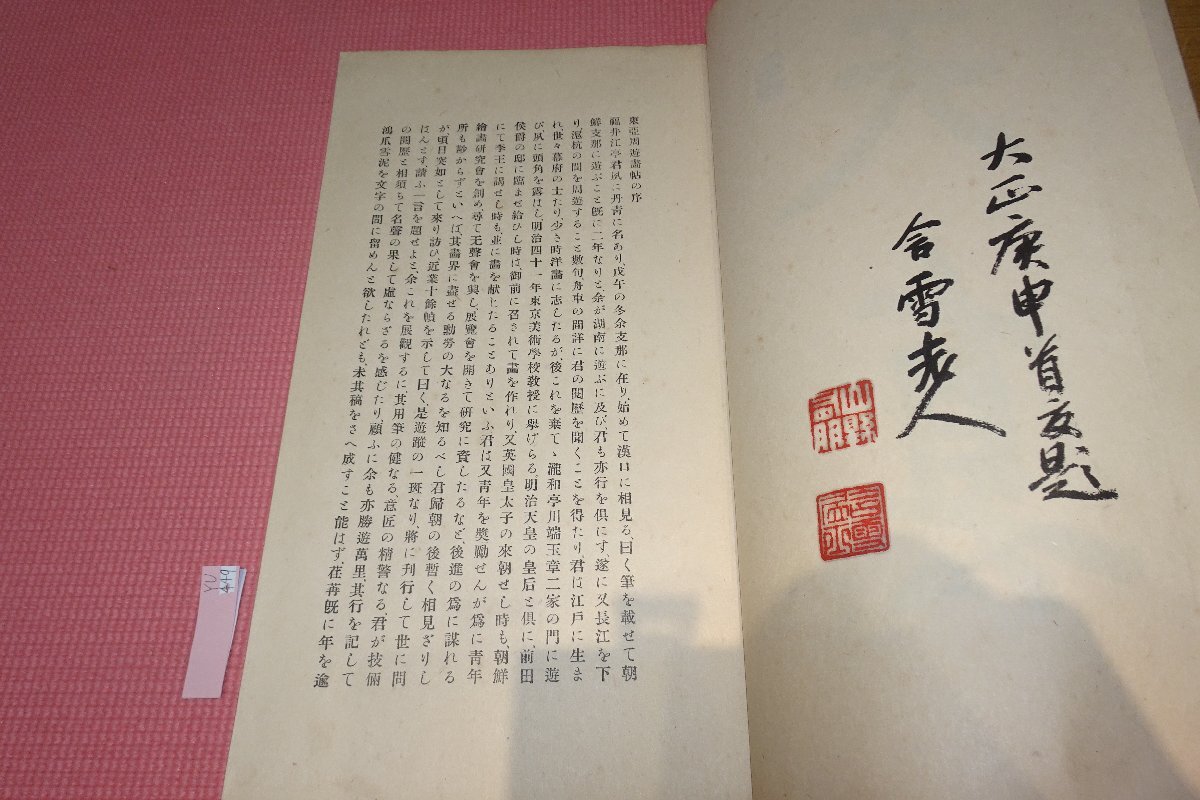 大正庚申首夏題
含雪老人
東亞周遊畫帖の序
福井江亭君夙に丹青に名あり、戊午の冬余支那に在り、始めて漢口に相見る、曰く筆を載せて朝
鮮支那に遊ぶこと既に二年なりと、余が湖南に遊ぶに及び、君も亦行を倶にす、遂に又長江を下
り、滬杭の間を周遊すること數旬、舟車の間詳に君の閲歷を聞くことを得たり、君は江戸に生ま
れ、世々幕府の士たり、少き時洋畵に志したるが、後これを棄てゝ瀧和亭川端玉章二家の門に遊
び、夙に頭角を露はし、明治四十一年東京美術學校教授に擧げらる、明治天皇の皇后と倶に、前田
侯爵の邸に臨ませ給ひし時は、御前に召されて畵を作れり、又英國皇太子の來朝せし時も、朝鮮
にて李王に謁せし時も、並に畵を献じたることありといふ、君は又青年を奬勵せんが爲に青年
繪畵研究會を創め、尋て无聲會を興し、展覽會を開きて研究に資したるなど、後進の爲に謀れる
所も尠からずといへば、其畵界に盡せる勳勞の大なるを知るべし、君歸朝の後暫く相見ざりし
が、頃日突如として來り訪ひ、近業十餘幀を示して曰く、是遊蹤の一斑なり、將に刋行して世に問
はんとす、請ふ一言を題せよと、余これを展觀するに、其用筆の健なる、意匠の精警なる、君が技倆
の閲歷と相須ちて名聲の果して虛ならざるを感じたり、顧ふに余も亦勝遊萬里、其行を記して
鴻爪雪泥を文字の間に留めんと欲したれども、未其稿をさへ成すこと能はず、荏苒既に年を逾